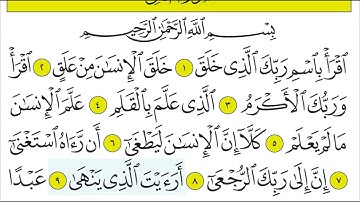 بِسْمِ ٱللَّهِ ٱلرَّحْمَٰنِ ٱلرَّحِيمِ
ٱقْرَأْ بِٱسْمِ رَبِّكَ ٱلَّذِى خَلَقَ ١ خَلَقَ ٱلْإِنسَٰنَ مِنْ عَلَقٍ ٢ ٱقْرَأْ
وَرَبُّكَ ٱلْأَكْرَمُ ٣ ٱلَّذِى عَلَّمَ بِٱلْقَلَمِ ٤ عَلَّمَ ٱلْإِنسَٰنَ
مَا لَمْ يَعْلَمْ ٥ كَلَّآ إِنَّ ٱلْإِنسَٰنَ لَيَطْغَىٰٓ ٦ أَن رَّءَاهُ ٱسْتَغْنَىٰٓ
٧ إِنَّ إِلَىٰ رَبِّكَ ٱلرُّجْعَىٰٓ ٨ أَرَءَيْتَ ٱلَّذِى يَنْهَىٰ ٩ عَبْدًا